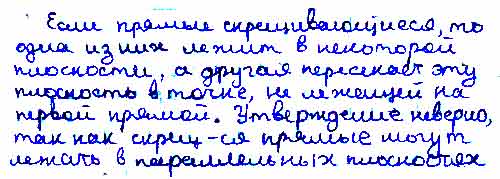 Если прямые скрещивающиеся, то
одна из них лежит в некоторой
плоскости, а другая пересекает эту
плоскость в точке, не лежащей на
первой прямой. Утверждение неверно,
так как скрещ-ся прямые могут
лежать в параллельных плоскостях